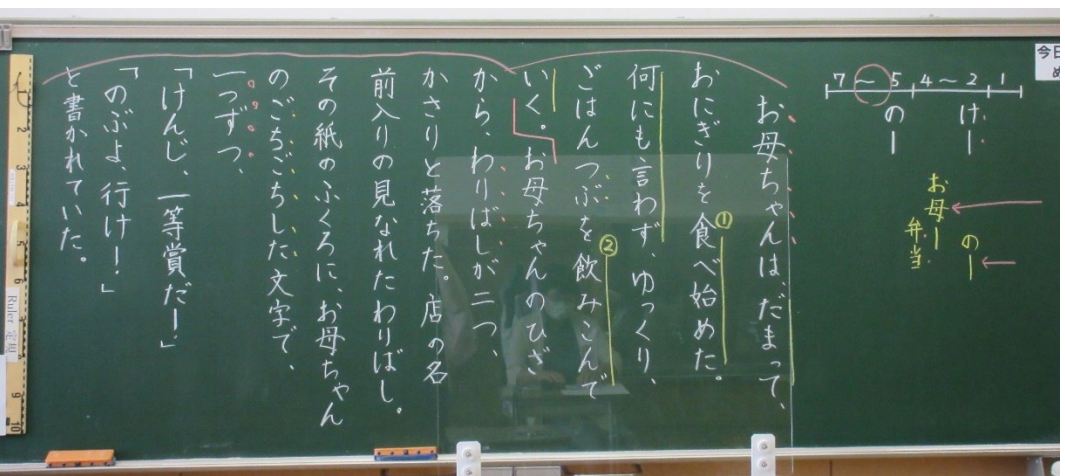 今日
め
7〜54〜21
け
の
お母
弁当
の
お母ちゃんは、だまって、
おにぎりを食べ始めた。
①
何にも言わず、ゆっくり、
ごはんつぶを飲みこんで
②
いく。お母ちゃんのひざ
から、わりばしが二つ、
かさりと落ちた。店の名
前入りの見なれたわりばし。
その紙のふくろに、お母ちゃん
のごちごちした文字で、
一つずつ、
「けんじ、一等賞だー!」
「のぶよ、行けー!」
と書かれていた。
1
2
3
4
5
6
9
10
Ruler 定規